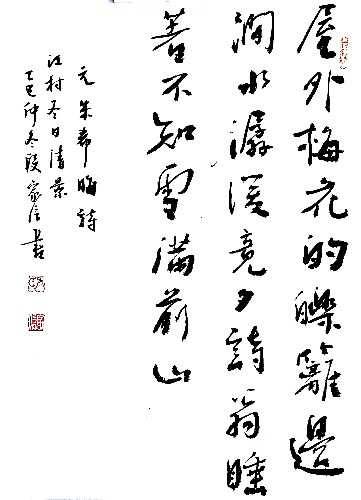 屋外梅花的皪籬邊
澗水潺湲竟夕詩翁睡
著不知雪滿前山
元朱希晦詩
江村冬日清景
乙巳仲冬段家書